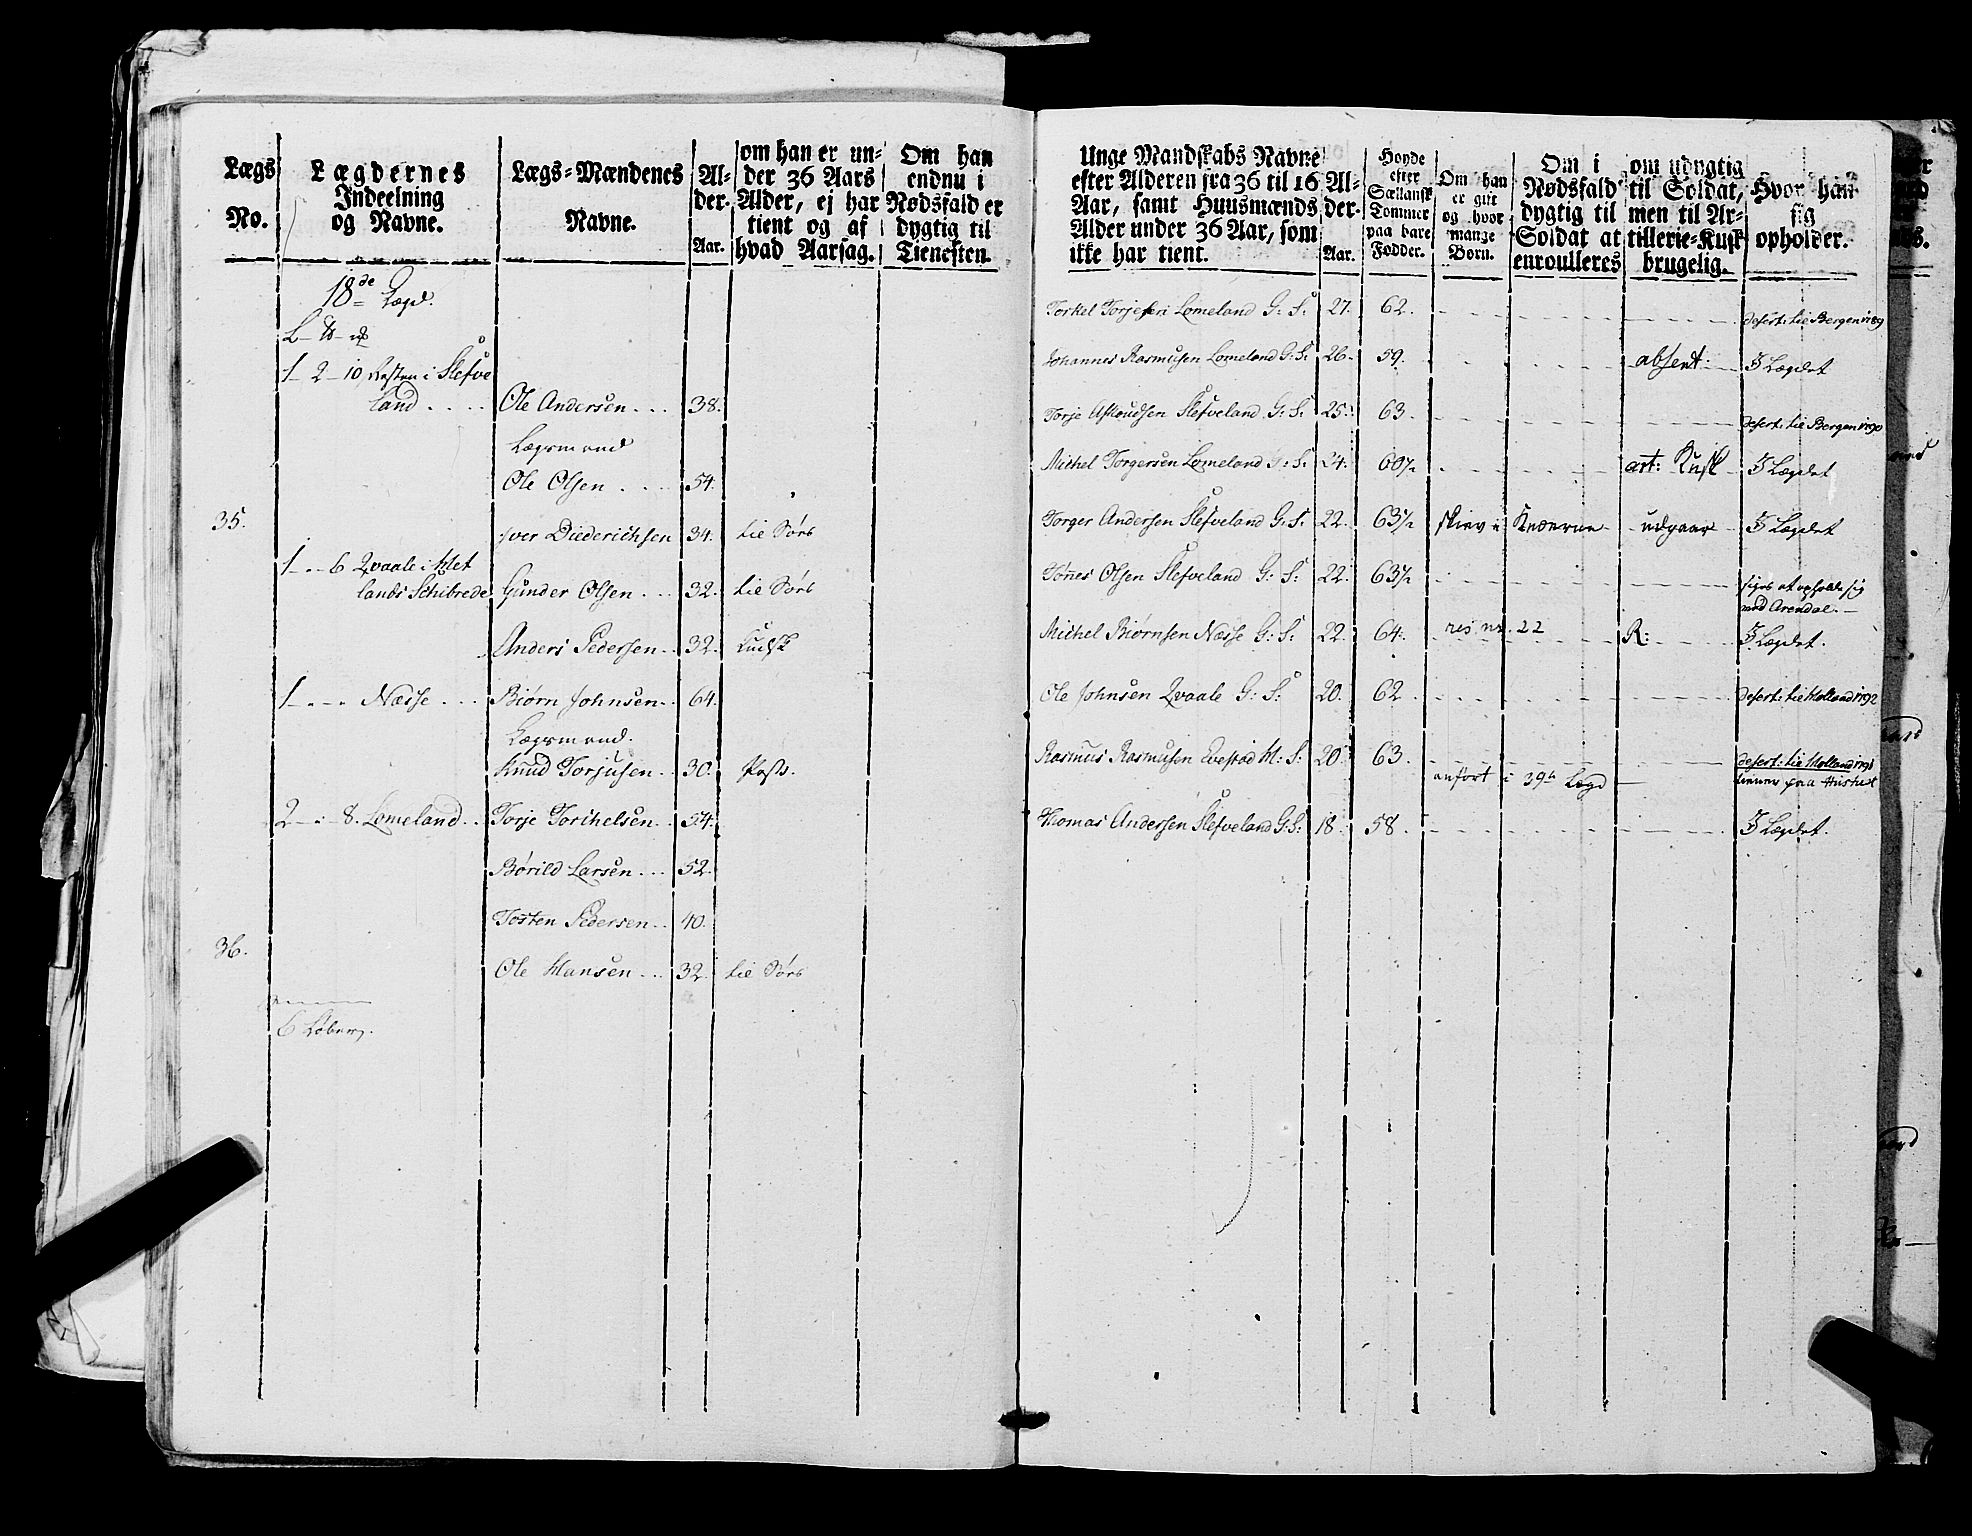 Lægs No.
Lægdernes Indeelning og Navne.
Lægs-Mændenes Navne.
Al-der. Aar.
om han er un-der 36 Aars Alder, ej har tient og af hvad Aarsag.
Om han endnu i Nødsfald er dygtig til Tienesten.
18de Lægd.
1 - 2 - 10 Resten i Slefve
land . . . . Ole Andersen . . . 38.
Lægsmand
Ole Olsen . . . 54.
35. Iver Diederichsen 34. til Søes
1 - " - 6 Qvaale i Het
lands Schibrede Gunder Olsen . . . 32. til Søes
Anders Pedersen . . 32. Kudsk
1 - " - " Næsse . . . Biørn Johnsen . . 64.
Lægsmand.
Knud Torjusen . . 30.
2 - " - 8. Lomeland . . Torje Torchelsen . . 54.
Børild Larsen . . . 52.
Tosten Pedersen . . 40.
36.
Ole Hansen . . . 32. til Søes
6 Løber.
Unge Mandskabs Navne efter Alderen fra 36 til 16 Aar, samt Huusmænds Alder under 36 Aar, som ikke har tient.
Al-der. Aar.
Høyde efter Sællansk Tommer paa bare Fødder.
Om han er gift og hvor mange Børn.
Om i Nødsfald dygtig til Soldat at enroulleres
om udygtig til Soldat, men til Ar-tillerie-Kusk brugelig.
Hvor han sig opholder.
Torkel Torjesen Lomeland G: S: 27. 62. desert: til Bergen 1789
Johannes Rasmusen Lomeland G: S: 26. 59. absent. I Lægdet
Torje Aslaudsen Slefveland G: S: 25. 63. desert: til Bergen 1790
Michel Torgersen Lomeland G: S: 24. 60½ art: Kusk I Lægdet
Torger Andersen Slefveland G: S: 22. 63½ skiev i Knæerne udgaar I Lægdet
Tønes Olsen Slefveland G: S: 22. 63½ siges at opholde sig
ved Arendal.
Michel Biørnsen Næsse G: S: 22. 64. res nr. 22 R: I Lægdet.
Ole Johnsen Qvaale G: S: 20. 62 desert: til Holland 1792
Rasmus Rasmusen Evestad H: S: 20. 63. desert: til Holland 1791
anført i 39te Lægd
Thomas Andersen Slefveland G: S: 18. 58. I Lægdet.